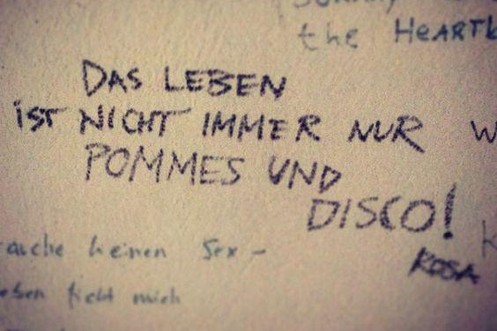 the HEARTb
DAS LEBEN
iST NICHT IMMER NUR
POMMES UND
DISCO!
ROSA
auche keinen Sex-
eben fickt mich